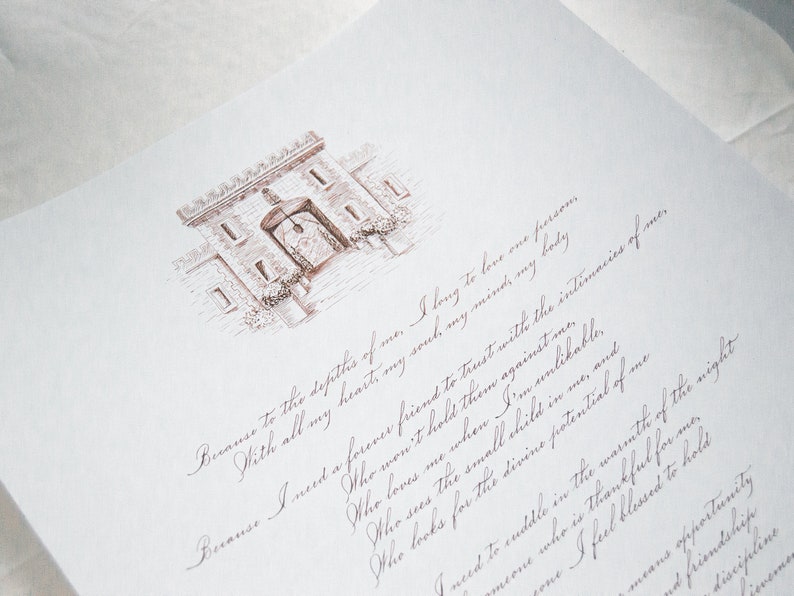 Because to the depths of me, I long to love one person,
With all my heart, my soul, my mind, my body
Because I need a forever friend to trust with the intimacies of me,
Who won't hold them against me,
Who loves me when I'm unlikable,
Who sees the small child in me, and
Who looks for the divine potential of me
I need to cuddle in the warmth of the night
someone who is thankful for me,
I feel blessed to hold
means opportunity
and friendship
discipline